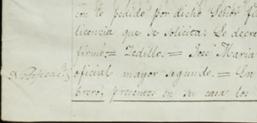 lo pedido por dicho Señor
licencia que se solicita. Lo decre
firmó.= Zedillo.= José Maria
oficial mayor segundo.= En
presente en su casa los